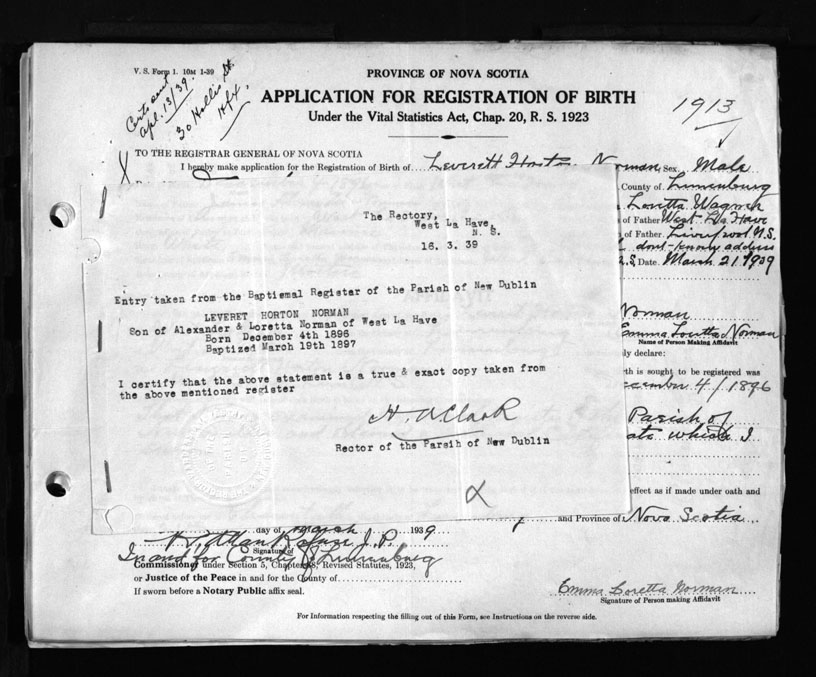 V. S. Form 1. 10M 1-39
Certs sent
Apl. 13/39.
30 Hollis St.
Hfx.
PROVINCE OF NOVA SCOTIA
APPLICATION FOR REGISTRATION OF BIRTH
Under the Vital Statistics Act, Chap. 20, R. S. 1923
1913
X
TO THE REGISTRAR GENERAL OF NOVA SCOTIA
I hereby make application for the Registration of Birth of Leverett Horton Norman, Sex Male
County of Lunenburg
Loretta Wagner
of Father West La Have
of Father Liverpool N.S.
dont know address
Date March 21. 1939
The Rectory,
West La Have,
N. S.
16. 3. 39
Entry taken from the Baptismal Register of the Parish of New Dublin
LEVERET HORTON NORMAN
Son of Alexander & Loretta Norman of West La Have
Born December 4th 1896
Baptized March 19th 1897
I certify that the above statement is a true & exact copy taken from
the above mentioned register
Rector of the Parsih of New Dublin
Norman
Emma Loretta Norman
Name of Person Making Affidavit
ly declare:
rth is sought to be registered was
cember 4/1896
Parish of
which I
effect as if made under oath and
and Province of Nova Scotia
day of March 1939
J. P.
Signature of
In and for County of Lunenburg
Commissioner under Section 5, Chapter 38, Revised Statutes, 1923,
or Justice of the Peace in and for the County of
If sworn before a Notary Public affix seal.
Emma Loretta Norman
Signature of Person making Affidavit
For Information respecting the filling out of this Form, see Instructions on the reverse side.